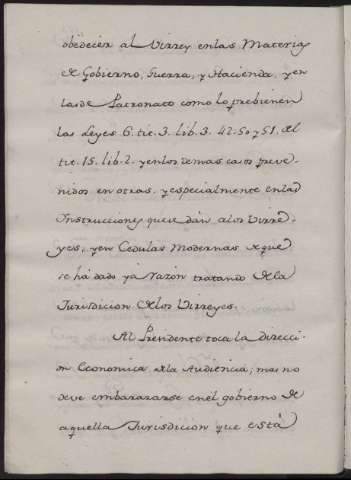 obedecer al Virrey enlas Materias
de Gobierno, Guerra, y Hacienda, yen
las de Patronato como lo prebienen
las Leyes 6. tit. 3. lib. 3. 42. 50 y 51. del
tit. 15. lib. 2. yenlos demas casos preve-
nidos en otras, y especialmente enlas
Instrucciones quese dán alos Virre-
yes, yen Cedulas Modernas deque
se há dado yá razón tratando dela
Jurisdicion delos Virreyes.
Al Presidente toca la direcci-
on Economica dela Audiencia; mas no
deve embarazarse enél gobierno de
aquella Jurisdicion que está